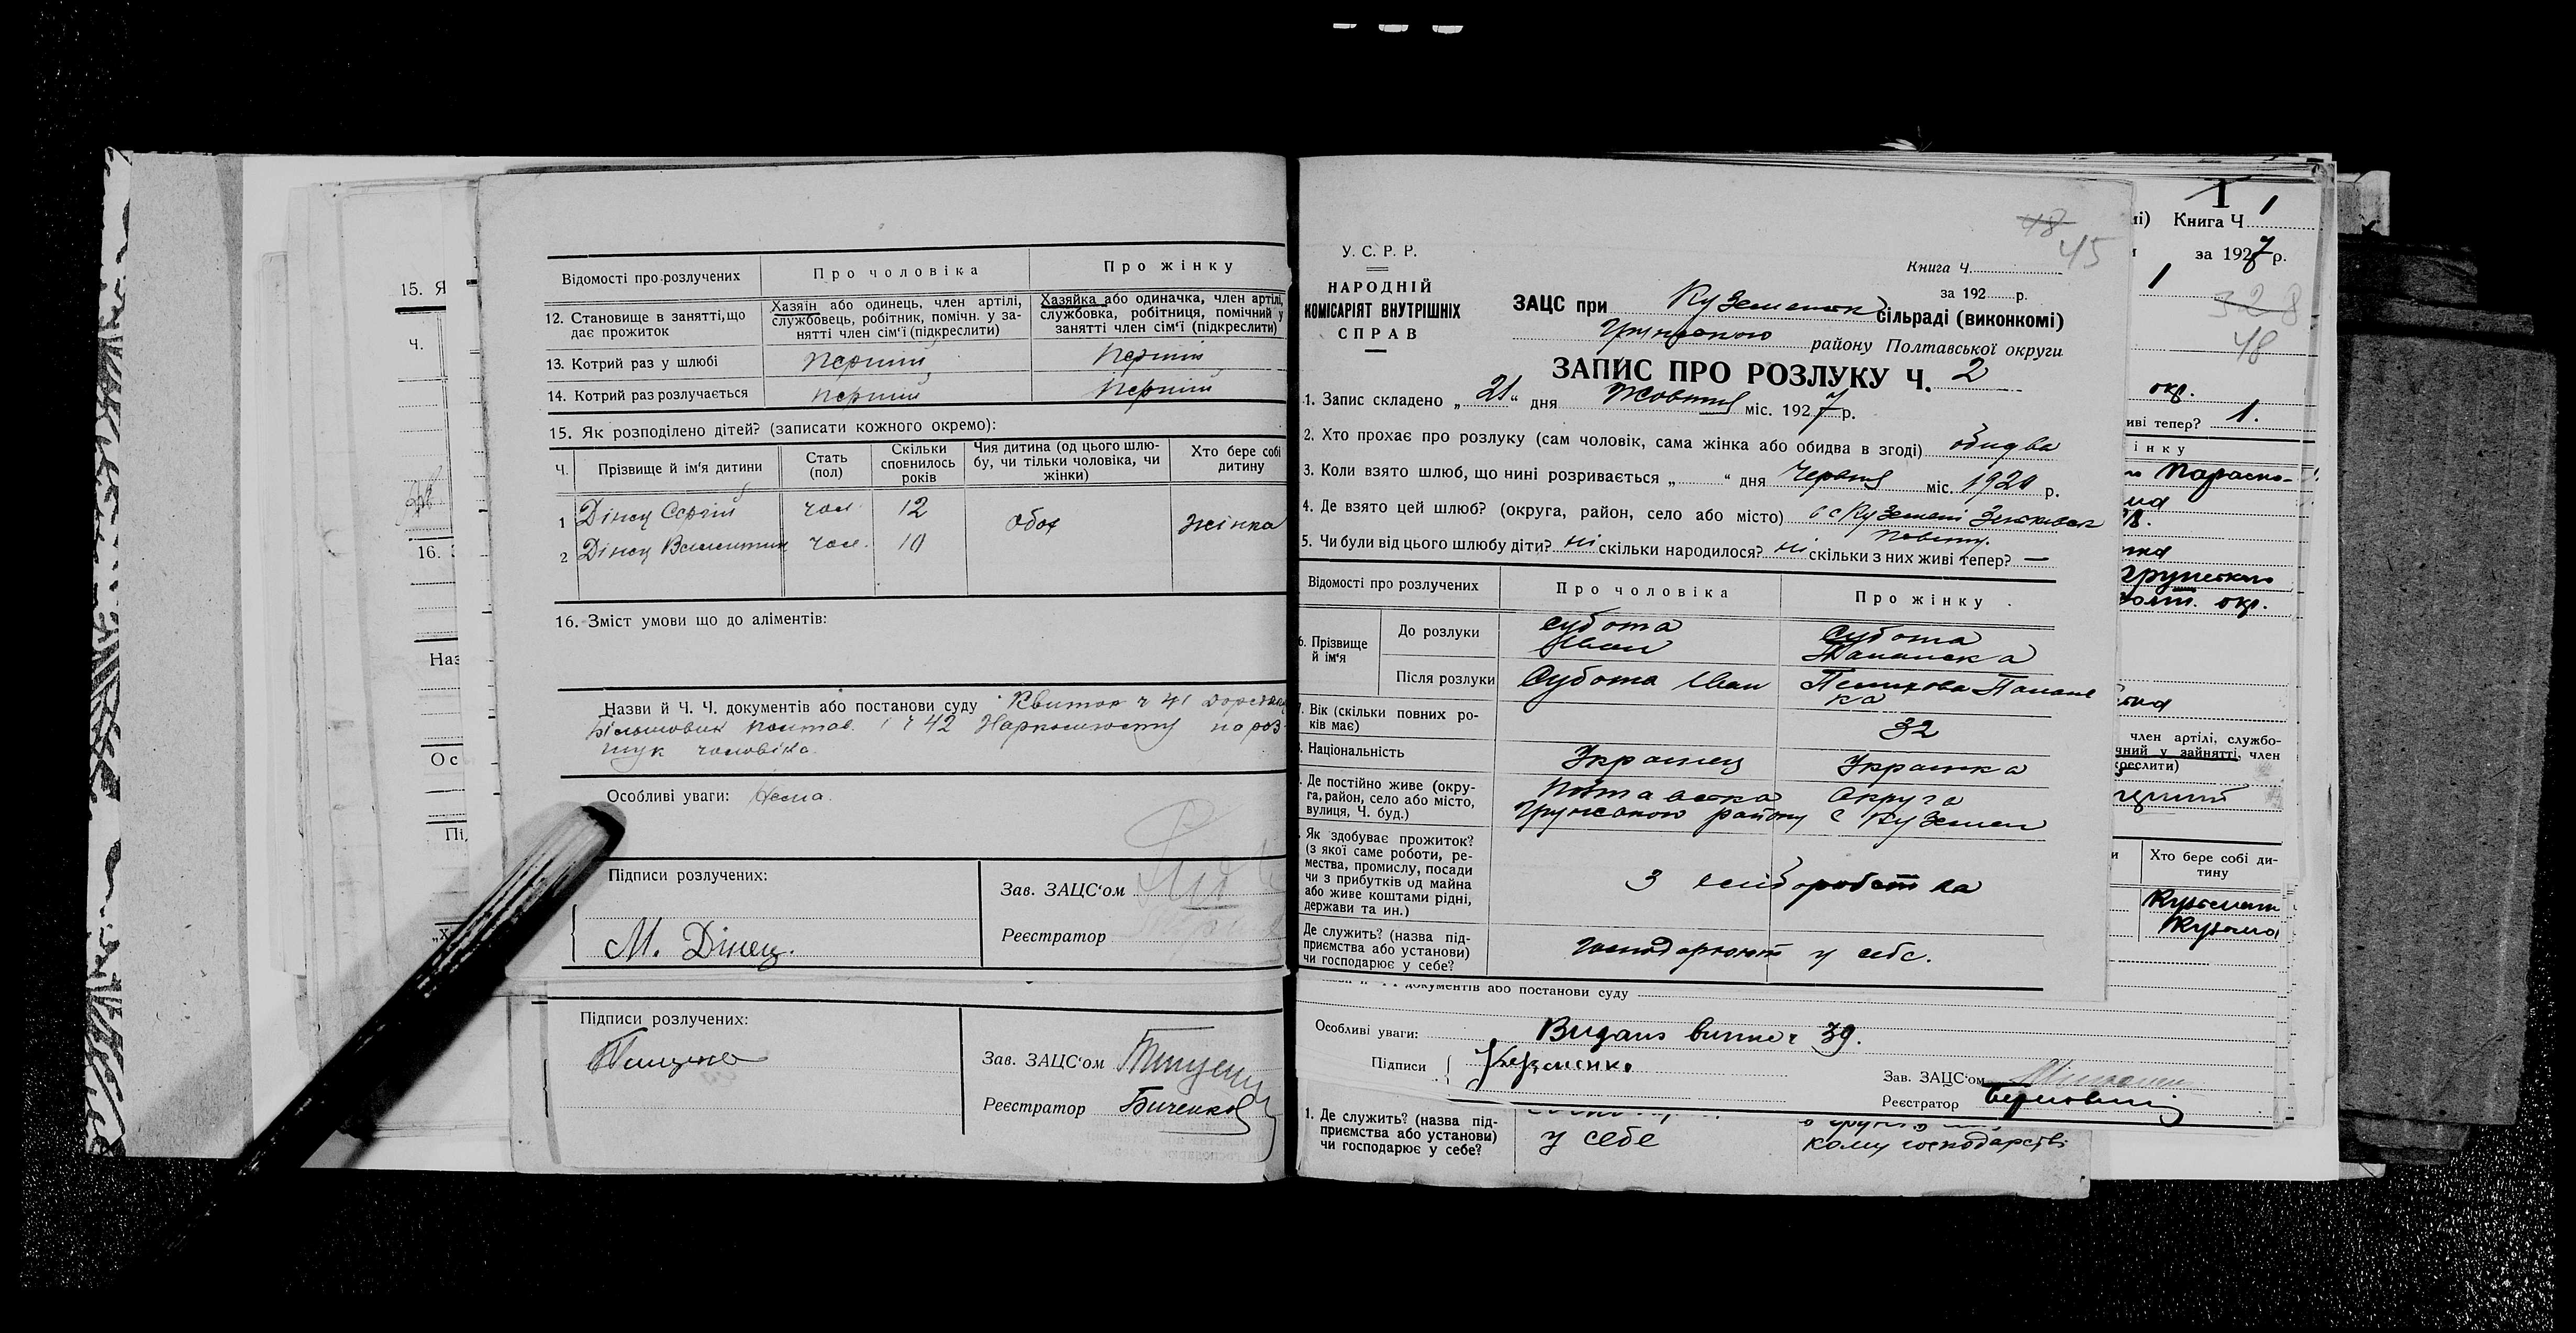 15. Я
Ч.
16. З
Наз
Ос
Пі
„Х
Відомості про розлучених
Про чоловіка
Про жінку
12. Становище в занятті, що дає прожиток
Хазяїн або одинець, член артілі, службовець, робітник, помічн. у занятті член сім'ї (підкреслити)
Хазяйка або одиначка, член артілі, службовка, робітниця, помічний у занятті член сім'ї (підкреслити)
13. Котрий раз у шлюбі
перший
перший
14. Котрий раз розлучається
перший
перший
15. Як розподілено дітей? (записати кожного окремо):
Ч.
Прізвище й ім'я дитини
Стать (пол)
Скільки сповнилось років
Чия дитина (од цього шлюбу, чи тільки чоловіка, чи жінки)
Хто бере собі дитину
1 Дінец Сергій чол. 12
обох жінка
2 Дінец Валентин чол. 10
16. Зміст умови що до аліментів:
Назви й Ч. Ч. документів або постанови суду Квиток ч 41
ч 42 на роз-
шук чоловіка.
Особливі уваги: Нема.
Підписи розлучених:
Зав. ЗАЦС'ом
М. Дінец.
Реєстратор
Підписи розлучених:
Зав. ЗАЦС'ом
Реєстратор Биченков
48
45
У. С. Р. Р.
НАРОДНІЙ
КОМІСАРІЯТ ВНУТРІШНІХ
СПРАВ
Книга Ч.
за 192 р.
ЗАЦС при Куземенск сільраді (виконкомі)
Грунського району Полтавської округи
ЗАПИС ПРО РОЗЛУКУ Ч. 2
1. Запис складено „21“ дня Жовтня міс. 1927 р.
2. Хто прохає про розлуку (сам чоловік, сама жінка або обидва в згоді) обидва
3. Коли взято шлюб, що нині розривається „ “ дня Червня міс. 1920 р.
4. Де взято цей шлюб? (округа, район, село або місто) в с Куземені Зіньківськ
повіту.
5. Чи були від цього шлюбу діти? ні скільки народилося? ні скільки з них живі тепер? —
Відомості про розлучених
Про чоловіка
Про жінку
6. Прізвище й ім'я
До розлуки
Субота
Іван
Субота
Панаска
Після розлуки
Субота Іван
Панас
ка
7. Вік (скільки повних років має)
32
Національність
Українец
Українка
Де постійно живе (округа, район, село або місто, вулиця, Ч. буд.)
Полтавська Округа
Грунського району с Куземен
Як здобуває прожиток? (з якої саме роботи, ремества, промислу, посади чи з прибутків од майна або живе коштами рідні, держави та ин.)
З
Де служить? (назва підприємства або установи) чи господарює у себе?
господарюют у себе.
документів або постанови суду
Особливі уваги: Видано витяг ч 39.
Підписи
Зав. ЗАЦС'ом
Реєстратор
1. Де служить? (назва підприємства або установи) чи господарює у себе?
у себе
кому господарстві
1
мі) Книга Ч. 1
за 1927 р.
1
328
48
окр.
иві тепер? 1.
інку
Параско-
Грунського
Полт. окр.
член артілі, службо-
чний у зайнятті, член
креслити)
Хто бере собі дитину